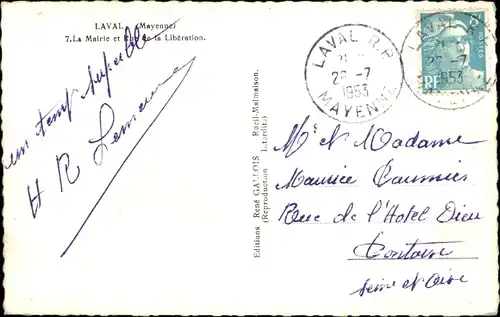 LAVAL (Mayenne)
7. La Mairie et Rue de la Libération.
un temp superbe
H R
Editions René GALLOIS Rueil-Malmaison.
(Reproduction Interdite)
LAVAL R.P.
28 -7
1953
MAYENNE
POSTES
RF
Mr et Madame
Maurice
Rue de l'Hotel Dieu
Pontoise
Seine et Oise